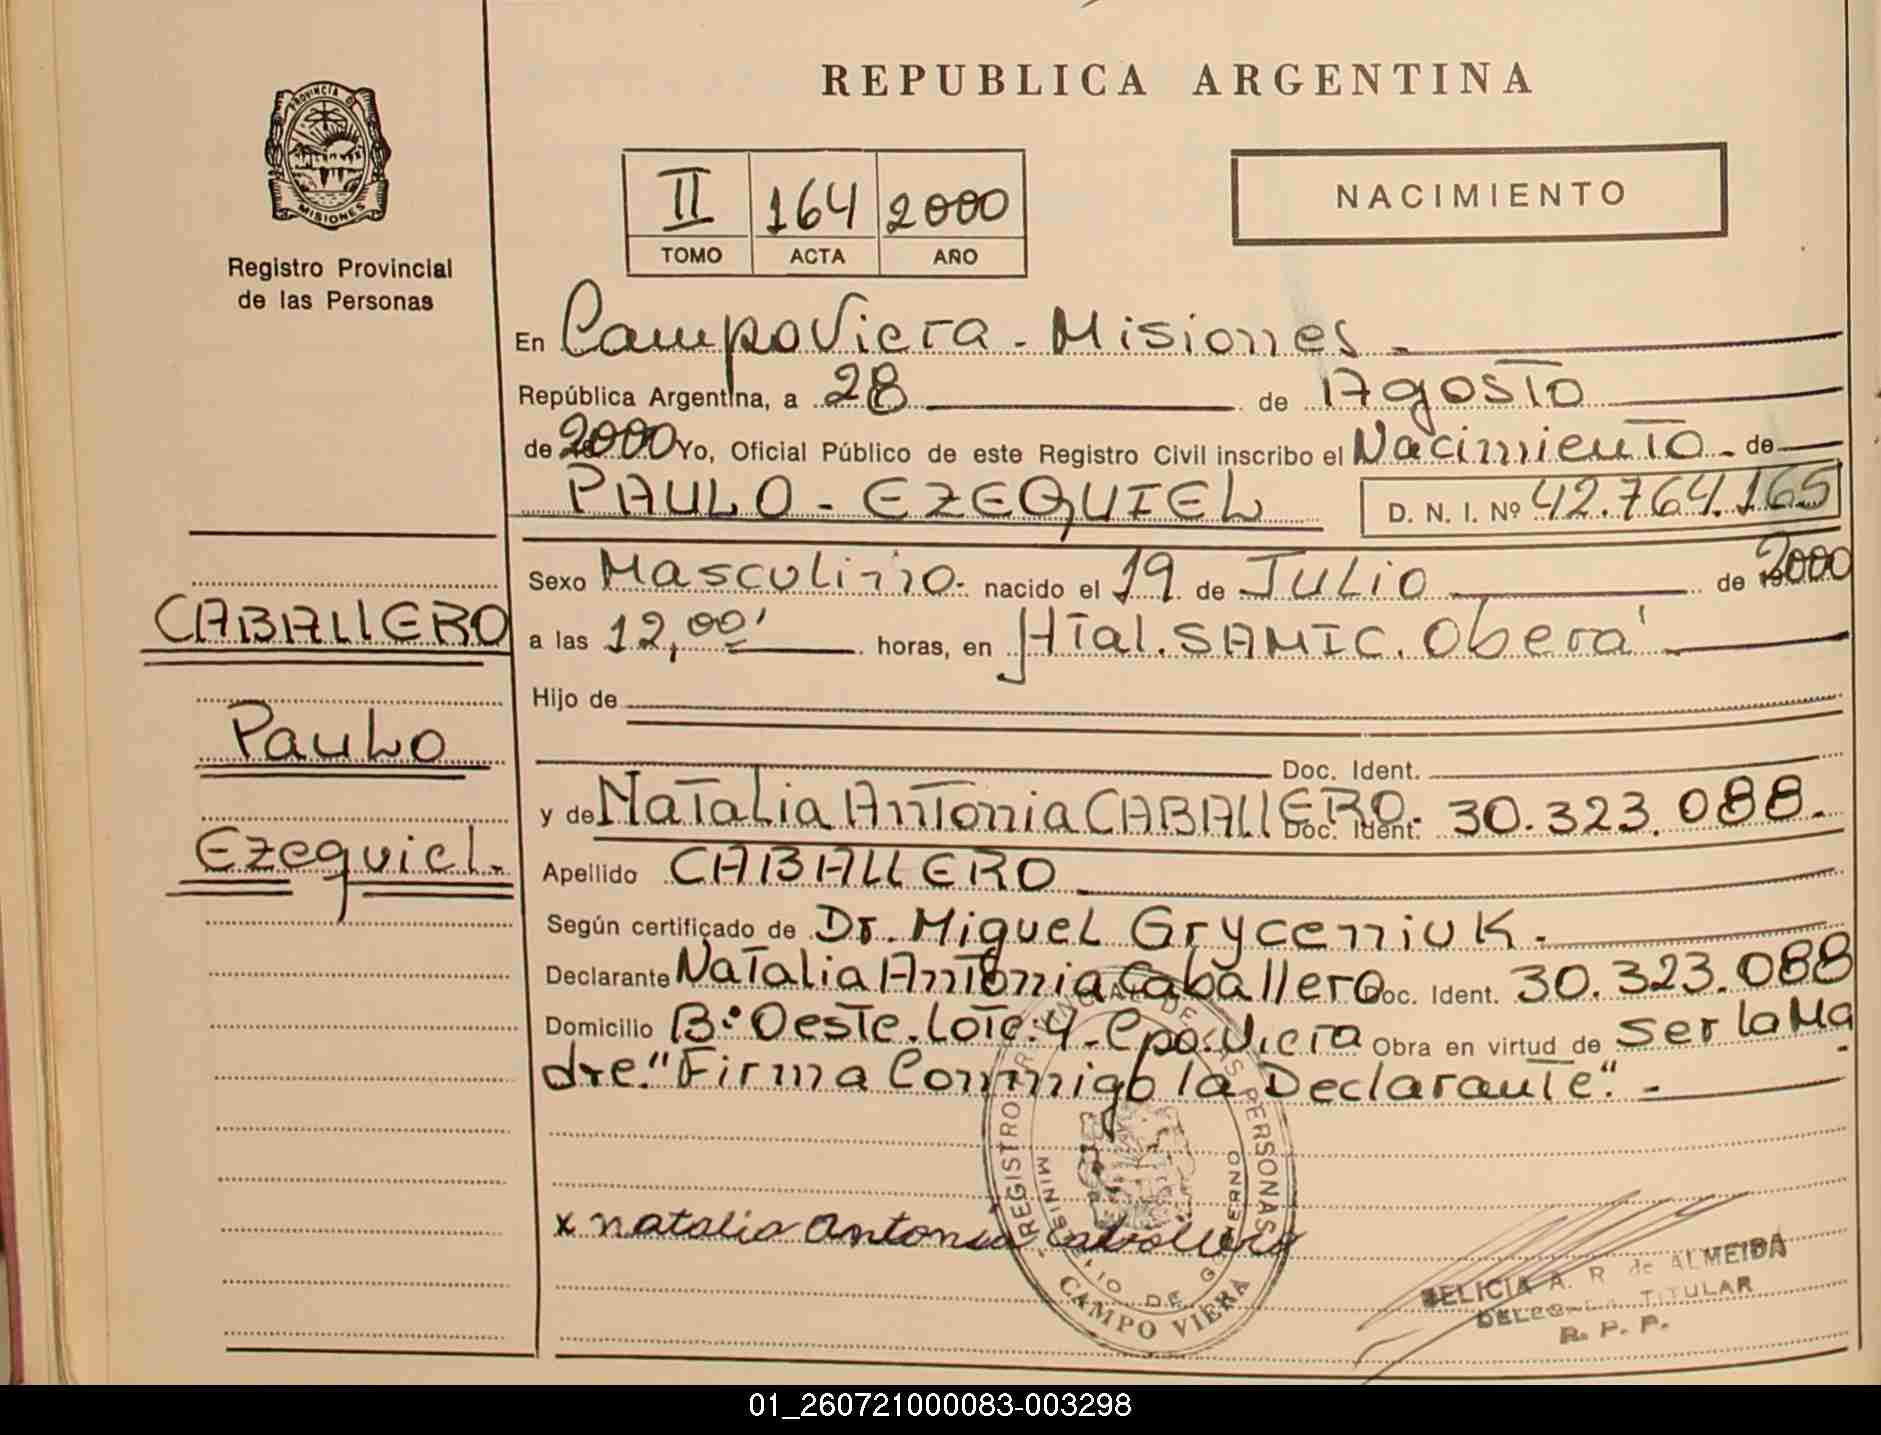 REPUBLICA ARGENTINA
PROVINCIA DE
MISIONES
Registro Provincial
de las Personas
II 164 2000
TOMO ACTA AÑO
NACIMIENTO
En Campo Viera - Misiones -
República Argentina, a 28 de Agosto
de 2000 Yo, Oficial Público de este Registro Civil inscribo el Nacimiento - de
PAULO - EZEQUIEL D. N. I. Nº 42.764.165
Sexo Masculino - nacido el 19 de Julio de 2000
a las 12,00' horas, en Htal. SAMIC. Oberá
Hijo de
Doc. Ident.
y de Natalia Antonia CABALLERO - Doc. Ident. 30.323.088.-
Apellido CABALLERO
Según certificado de Dr. Miguel Gryceniuk. -
Declarante Natalia Antonia Caballero Doc. Ident. 30.323.088
Domicilio B: Oeste. Lote: 4 - Cpo. Viera Obra en virtud de ser la Ma
dre." Firma Conmigo la Declarante". -
CABALLERO
Paulo
Ezequiel.-
x natalia antonia caballero
REGISTRO PROVINCIAL DE LAS PERSONAS
MINISTERIO DE GOBIERNO
CAMPO VIERA
DELICIA A. R. de ALMEIDA
DELEGADA TITULAR
R. P. P.
01_260721000083-003298